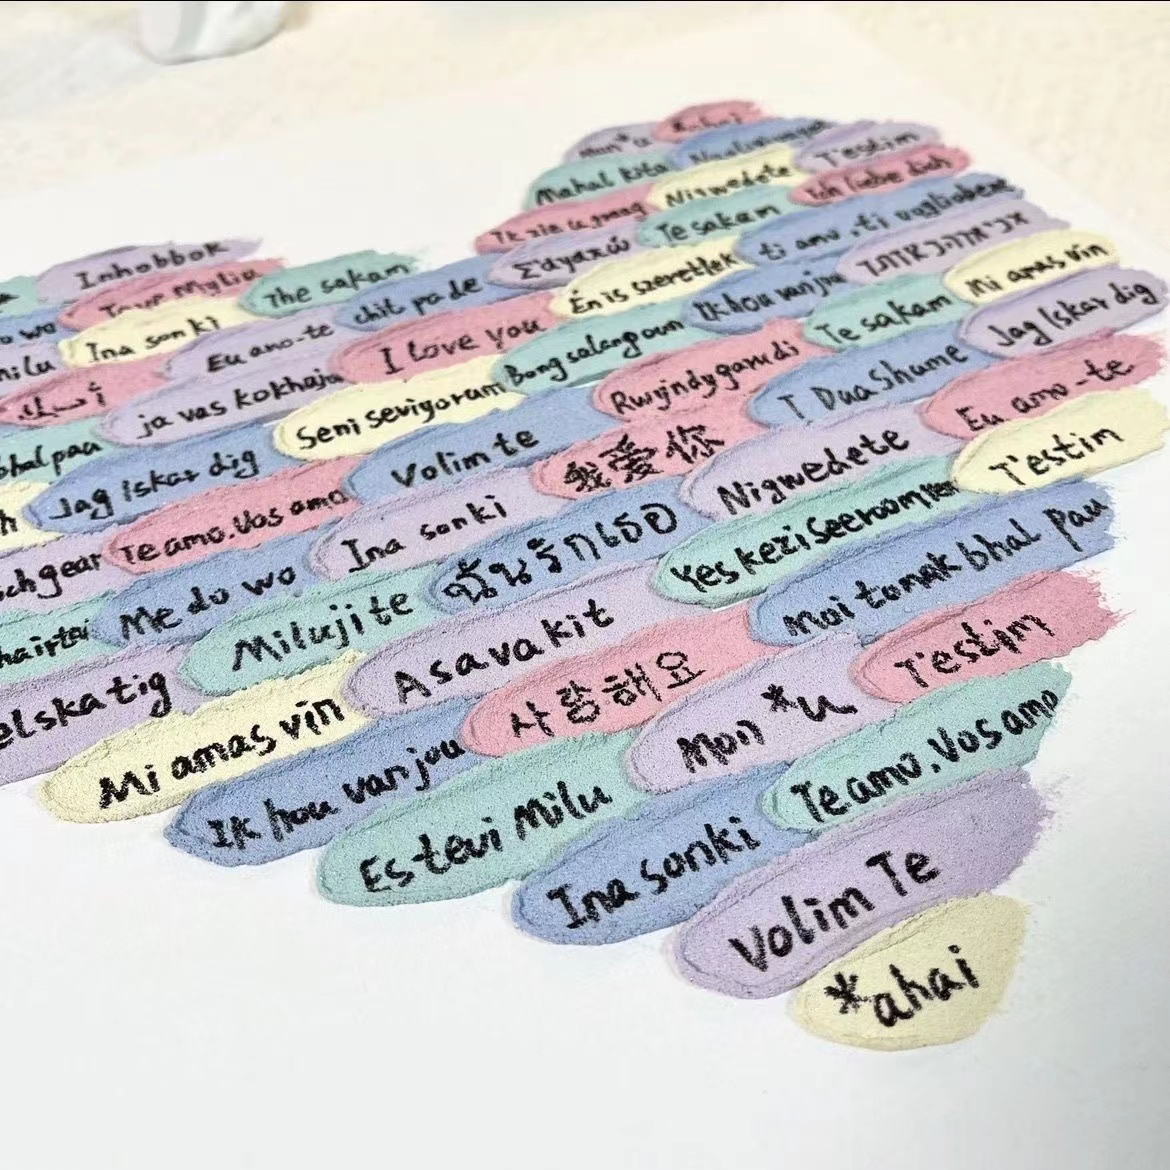 Mahal kita
T'estim
Nigwedete
Ich liebe dich
Te sakam
ti amo, ti vogliobene
Inhobbok
Σ'αγαπώ
The sakam
chit pa de
Én is szeretlek
Ik hou van jou
Mi amas vin
Ina sonki
Eu amo-te
I love you
Bong salang oun
Te sakam
Jag Iskar dig
ja vas kokhaja
Seni seviyorum
Rwyindy garu di
T Dua Shume
Eu amo-te
bhal pau
Jag Iskar dig
Volim te
我爱你
Nigwedete
T'estim
Te amo. Vos amo
Ina sonki
ฉันรักเธอ
Yes kezi Seeroom
Me do wo
Milujite
Asavakit
Moi tomak bhal pau
elska tig
Mi amas vin
사랑해요
Mon *u
T'estim
Ik hou van jou
Es tevi Milu
Te amo. Vos amo
Ina sonki
Volim Te
*ahai